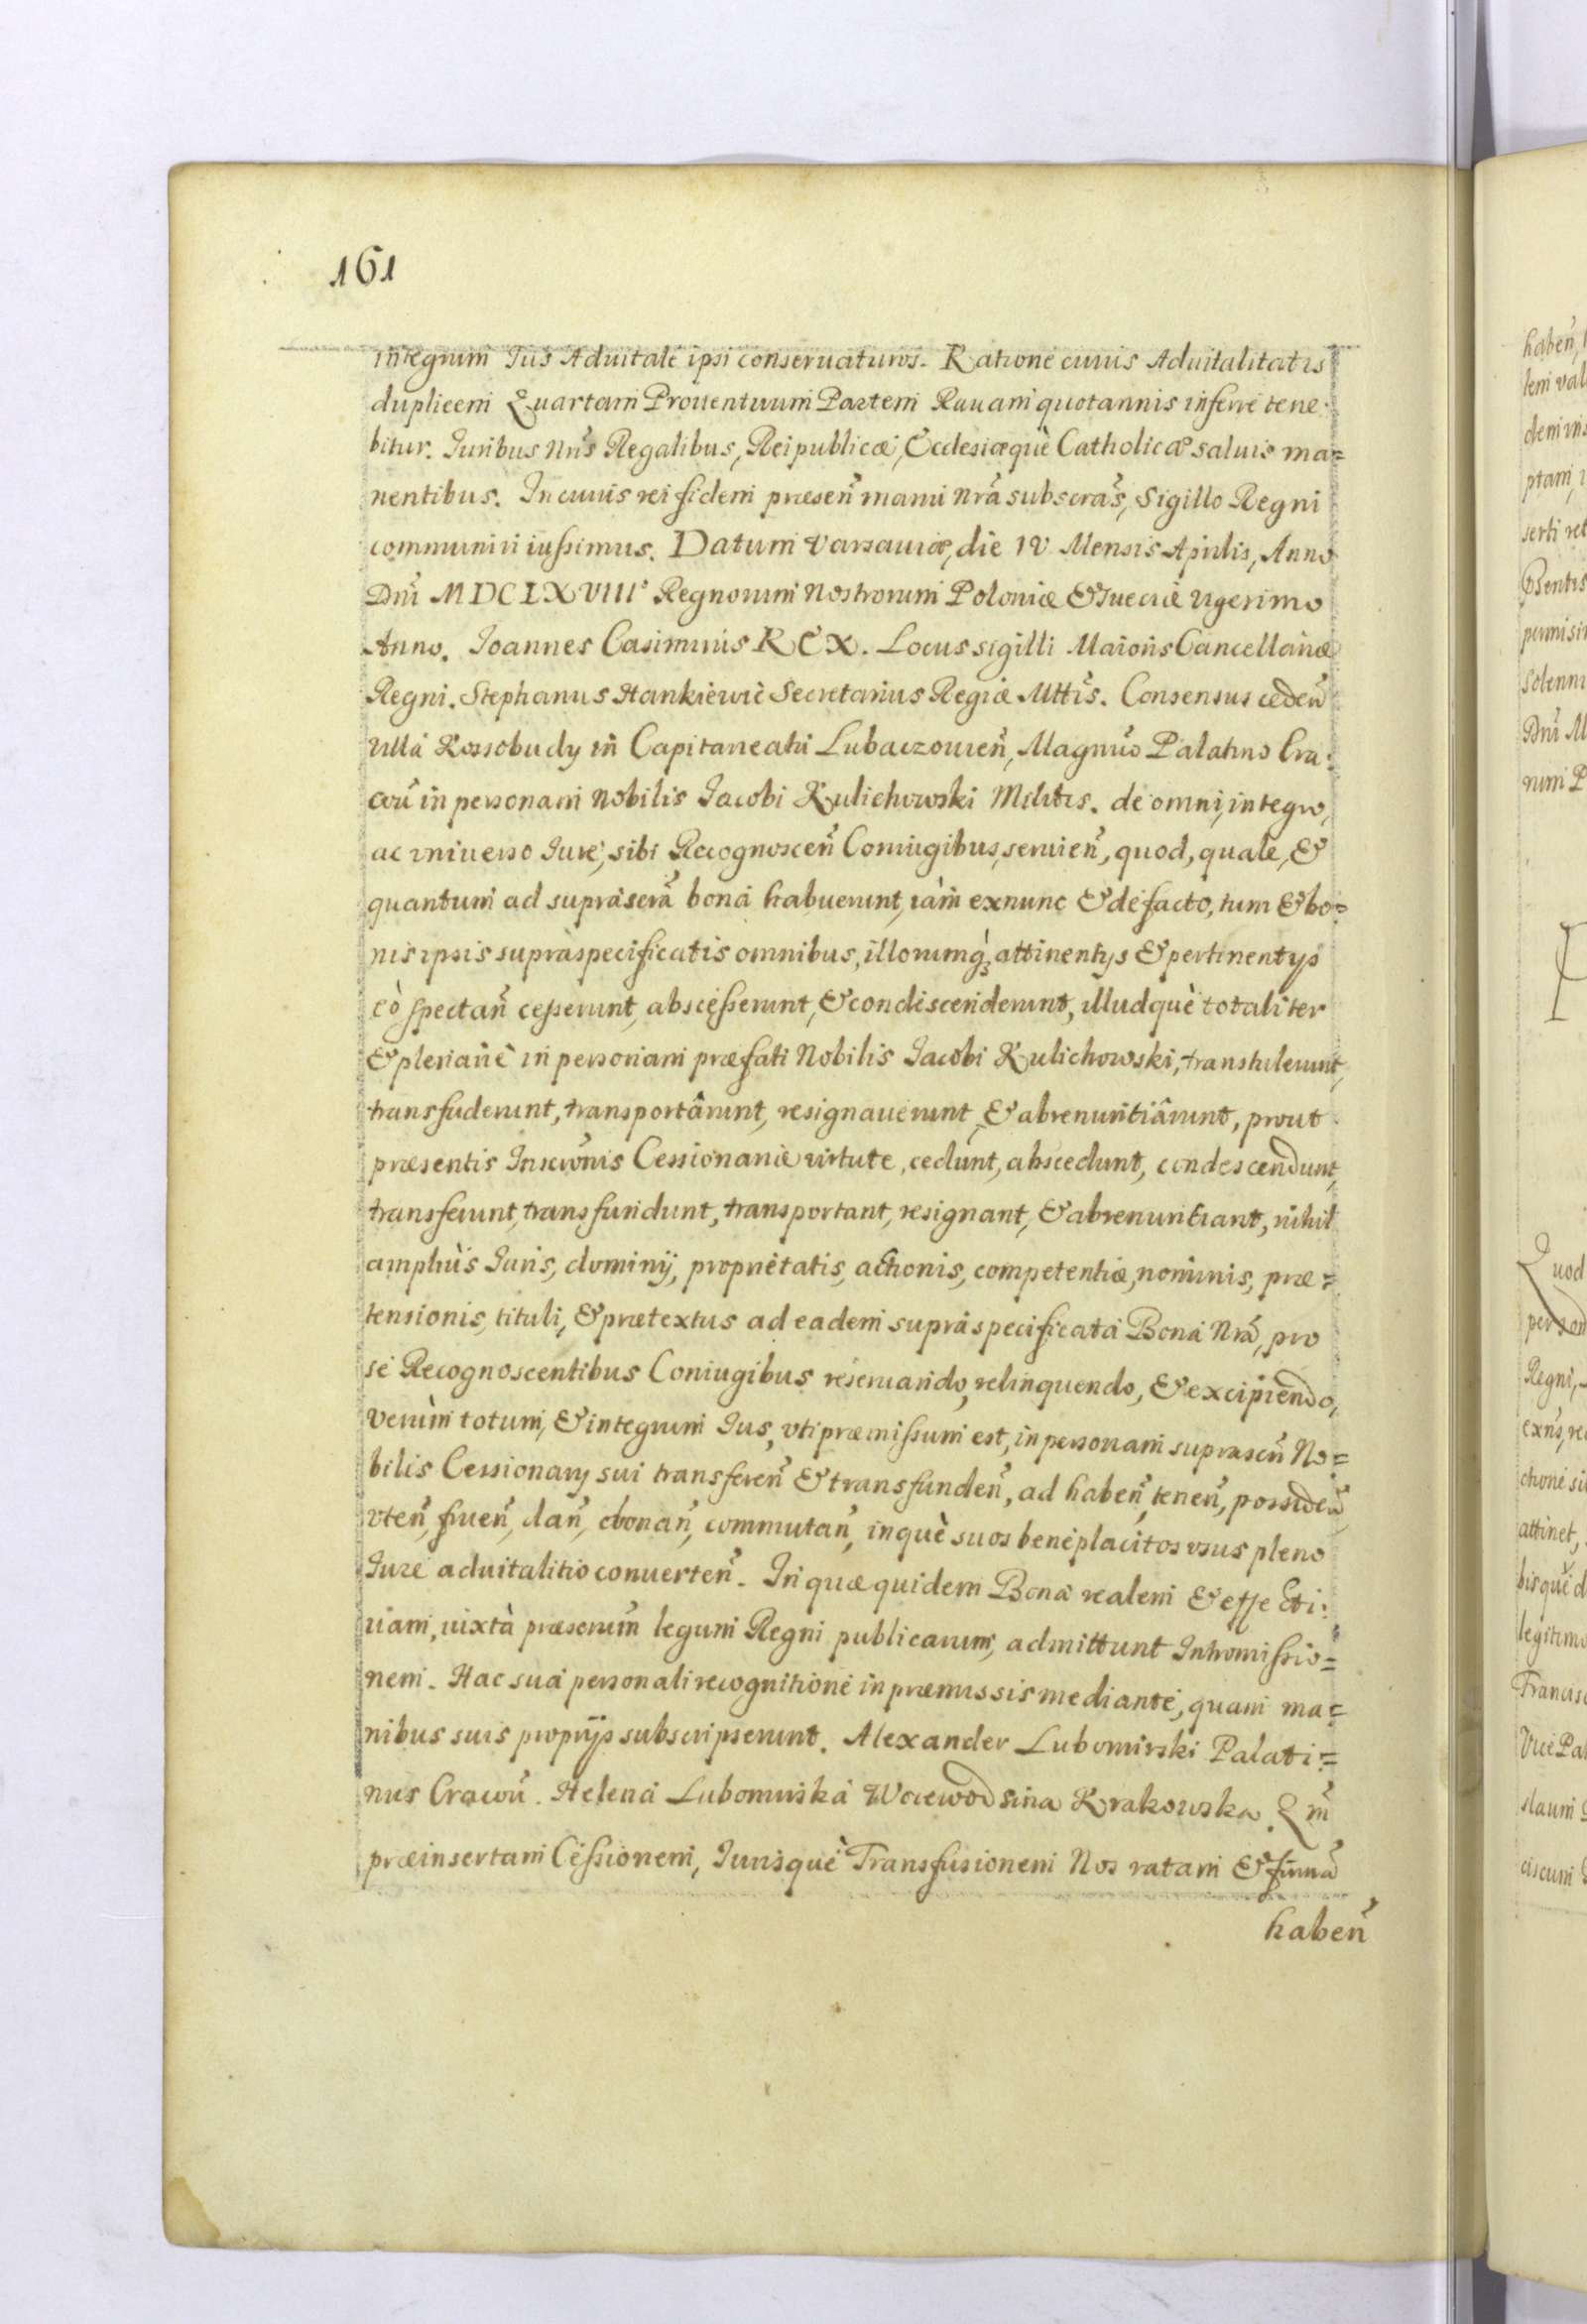 161
integrum Jus Aduitale ipsi conseruaturos. Ratione cuius Aduitalitatis
duplicem Quartam Prouentuum Partem Rauam quotannis inferre tene-
bitur. Juribus Nr̃is Regalibus, Reipublicæ, Ecclesiæquè Catholicæ saluis ma=
nentibus. In cuius rei fidem præseñ manu nr̃a subscras̃, Sigillo Regni
communiri iussimus. Datum Varsauiæ, die IV Mensis Aprilis, Anno
Dnĩ MDCLXVIIIº Regnorum Nostrorum Poloniæ & Sueciæ vigesimo
Anno. Joannes Casimirus REX. Locus sigilli Maioris Cancellariæ
Regni. Stephanus Hankiewic Secretarius Regiæ Mttĩs. Consensus cedeñ
villã Kossobudy in Capitaneatu Lubaczouieñ, Magnĩco Palatino Cra:
coũ in personam Nobilis Jacobi Kulichowski Militis. de omni, integro,
ac vniuerso Jure, sibi Recognosceñ Coniugibus, seruieñ, quod, quale, &
quantum ad suprascrã bona habuerunt, iàm exnunc & de facto, tum & bo=
nis ipsis supraspecificatis omnibus, illorumq́ attinentijs & pertinentijs
eò spectañ cesserunt, abscesserunt, & condiscenderunt, illudquè totaliter
& plenariè in personam præfati Nobilis Jacobi Kulichowski, transtulerunt,
transfuderunt, transportârunt, resignauerunt, & abrenuntiârunt, prout
præsentis Inscrõnis Cessionariæ virtute, cedunt, abscedunt, condescendunt,
transferunt, transfundunt, transportant, resignant, & abrenuntiant, nihil
ampliùs Juris, dominij, proprietatis, actionis, competentiæ, nominis, præ=
tensionis, tituli, & prætextus ad eadem supraspecificata Bona Nrã, pro
se Recognoscentibus Coniugibus reseruando, relinquendo, & excipiendo,
verùm totum, & integrum Jus, vti præmissum est, in personam suprascrĩ No=
bilis Cessionarij sui transfereñ & transfundeñ, ad habeñ, teneñ, possideñ,
vteñ, frueñ, dañ, donañ, commutañ, inquè suos beneplacitos vsus pleno
Jure aduitalitio conuerteñ. In quæ quidem Bona realem & effecti:
uam, iuxtà præscrum̃ legum Regni publicarum, admittunt Intromissio=
nem. Hac sua personali recognitione in præmissis mediante, quam ma=
nibus suis proprijs subscripserunt. Alexander Lubomirski Palati=
nus Cracoũ. Helena Lubomirska Woiewodsina Krakowska. Qm̃
præinsertam Cessionem, Jurisquè Transfusionem Nos ratam & firmã
habeñ